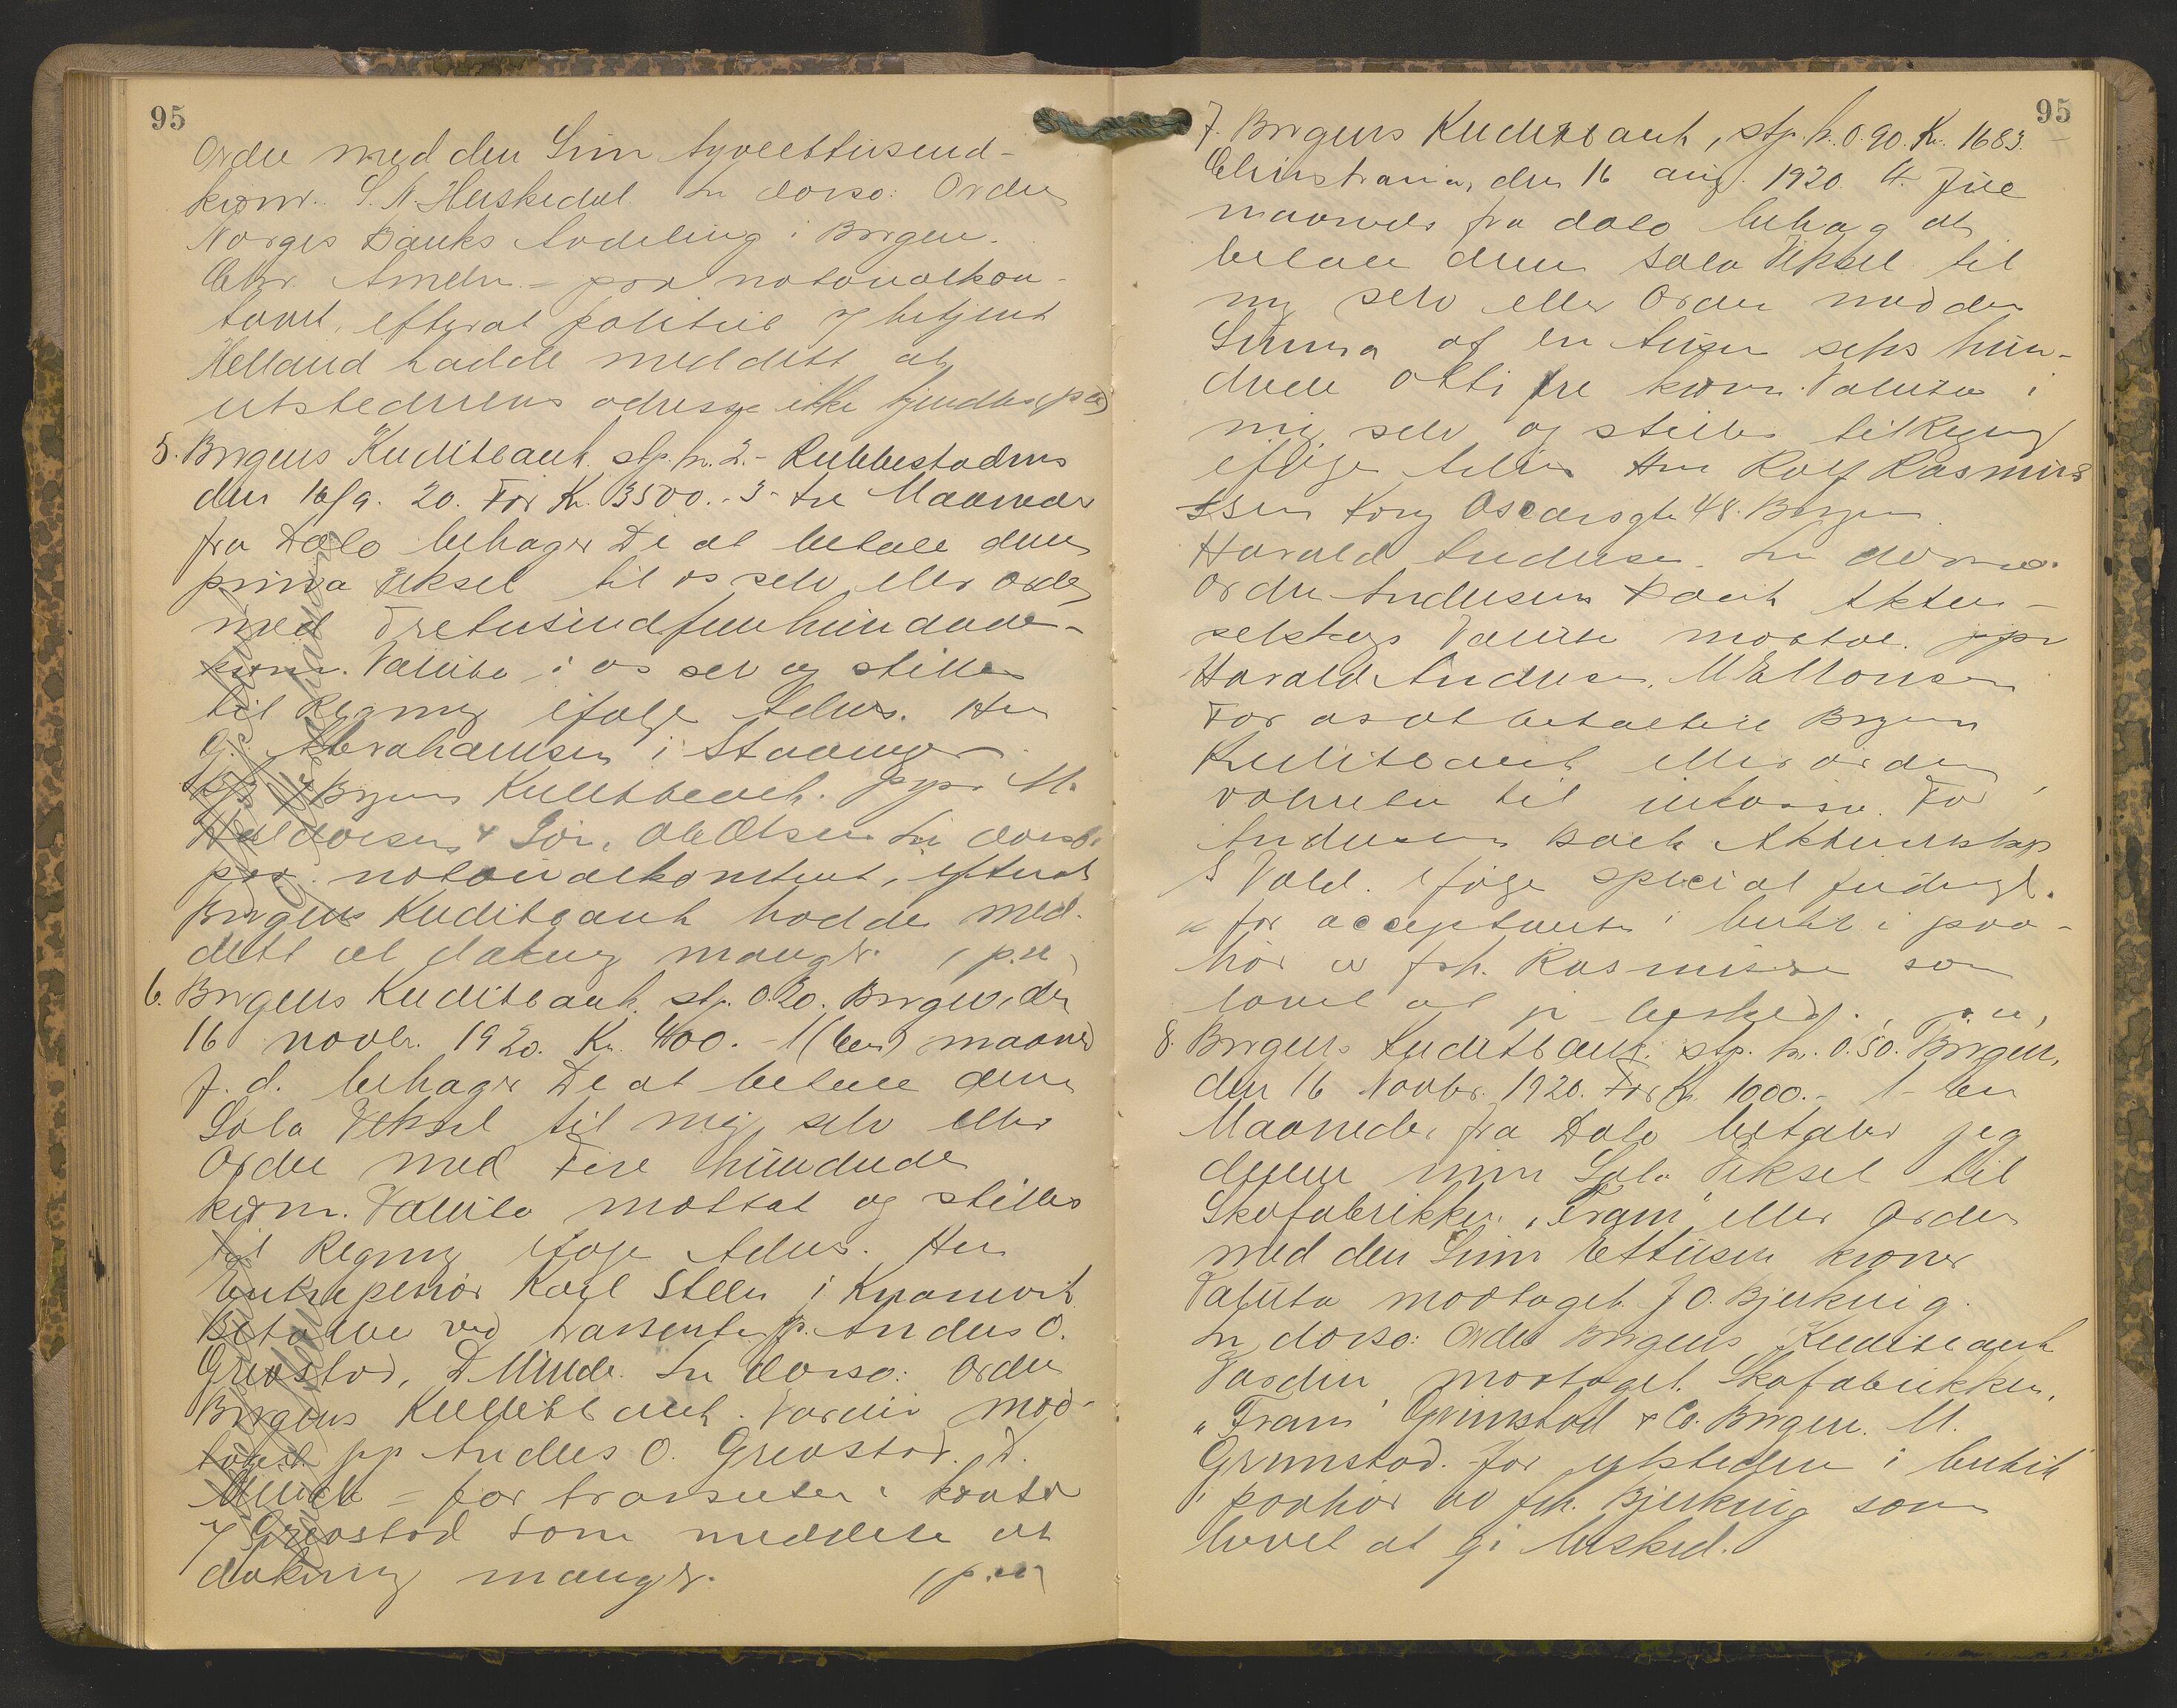 95
Ordre med den Sum tyveettusend-
kroner. S. N. Huskedal. In dorso: Ordre
Norges Banks Avdeling i Bergen.
Chr. - paa notarialkon-
toret, efterat politiet v/ betjent
Helland hadde meddelt at
utstederens adresse ikke kjendtes (p.a)
5. Bergens Kreditbank. stp. kr. 2.- Rubbestadnes
den 16/9. 20. For Kr. 3500.- 3- tre Maaneder
fra Dato behager De at betale denne
prima Veksel til os selv eller ordre
med Tretusindfemhundrede-
kroner. Valuta i os selv og stilles
til Regning ifølge Advis. Herr
G. Abrahamsen i Stavanger
Bergens Kreditbank. pp. M.
Haldorsen & Søn. Ole Olsen In dorso:
paa notarialkontoret, efterat
Bergens Kreditbank hadde med-
delt at dækning mangler. (p.a)
6. Bergens Kreditbank. stp. 0.20. Bergen, den
16 novbr. 1920. Kr. 400.- 1 (en) maaned
f. d. behager De at betale denne
Sola Veksel til mig selv eller
Ordre med Fire hundrede
kroner. Valuta mottat og stilles
til Regning ifølge Advis. Herr
Entreprenør Karl Steen i Knarvik
Betalbar ved trassenten p. Anders O.
Grevstad, D Minde. In dorso: Ordre
Bergens Kreditbank. Værdi mod-
taget pp Anders O. Grevstad. D.
Minde - for trassenten i kontor
v/ Grevstad som meddelte at
dækning mangler. (p.a)
95
7. Bergens Kreditbank, stp. kr. 0.90. Kr. 1683.-
Christiania, den 16 aug. 1920. 4. Fire
maaneder fra dato behag at
betale denne Sola Veksel til
mig selv eller Ordre med den
Summa af en tusen seks hun-
drede otti tre kroner. Valuta i
mig selv og stilles til Regning
ifølge Advis Herr Rolf Rasmus
ssen Kong Oscarsgt 48. Bergen.
Harald Andresen. In dorso:
Ordre Andresens Bank Aktie-
selskap Valuta mottat. ppr
Harald Andresen. M
For os at betales til Bergens
Kreditbank eller ordre,
valuta til inkasso. For
Andresens Bank Aktieselskap
S Vold. ifølge special fuldmagt.
for acceptanten i butik i paa-
hør av frk. Rasmussen som
lovet at gi besked. (p.a)
8. Bergens Kreditbank. stp. kr. 0.50. Bergen,
den 16 Novbr. 1920. For Kr. 1000.- 1- en
Maaneder fra Dato betaler jeg
denne min Sola Veksel til
Skofabrikken „Fram" eller Ordre
med den Sum Ettusen kroner
Valuta modtaget. J O. Bjerknig.
In dorso: Ordre Bergens Kreditbank
Værdien modtaget. Skofabrikken,
„Fram" Grimstad & Co. Bergen. M.
Grimstad. for utstederen i butik
i paahør av frk. Bjerknig som
lovet at gi besked.